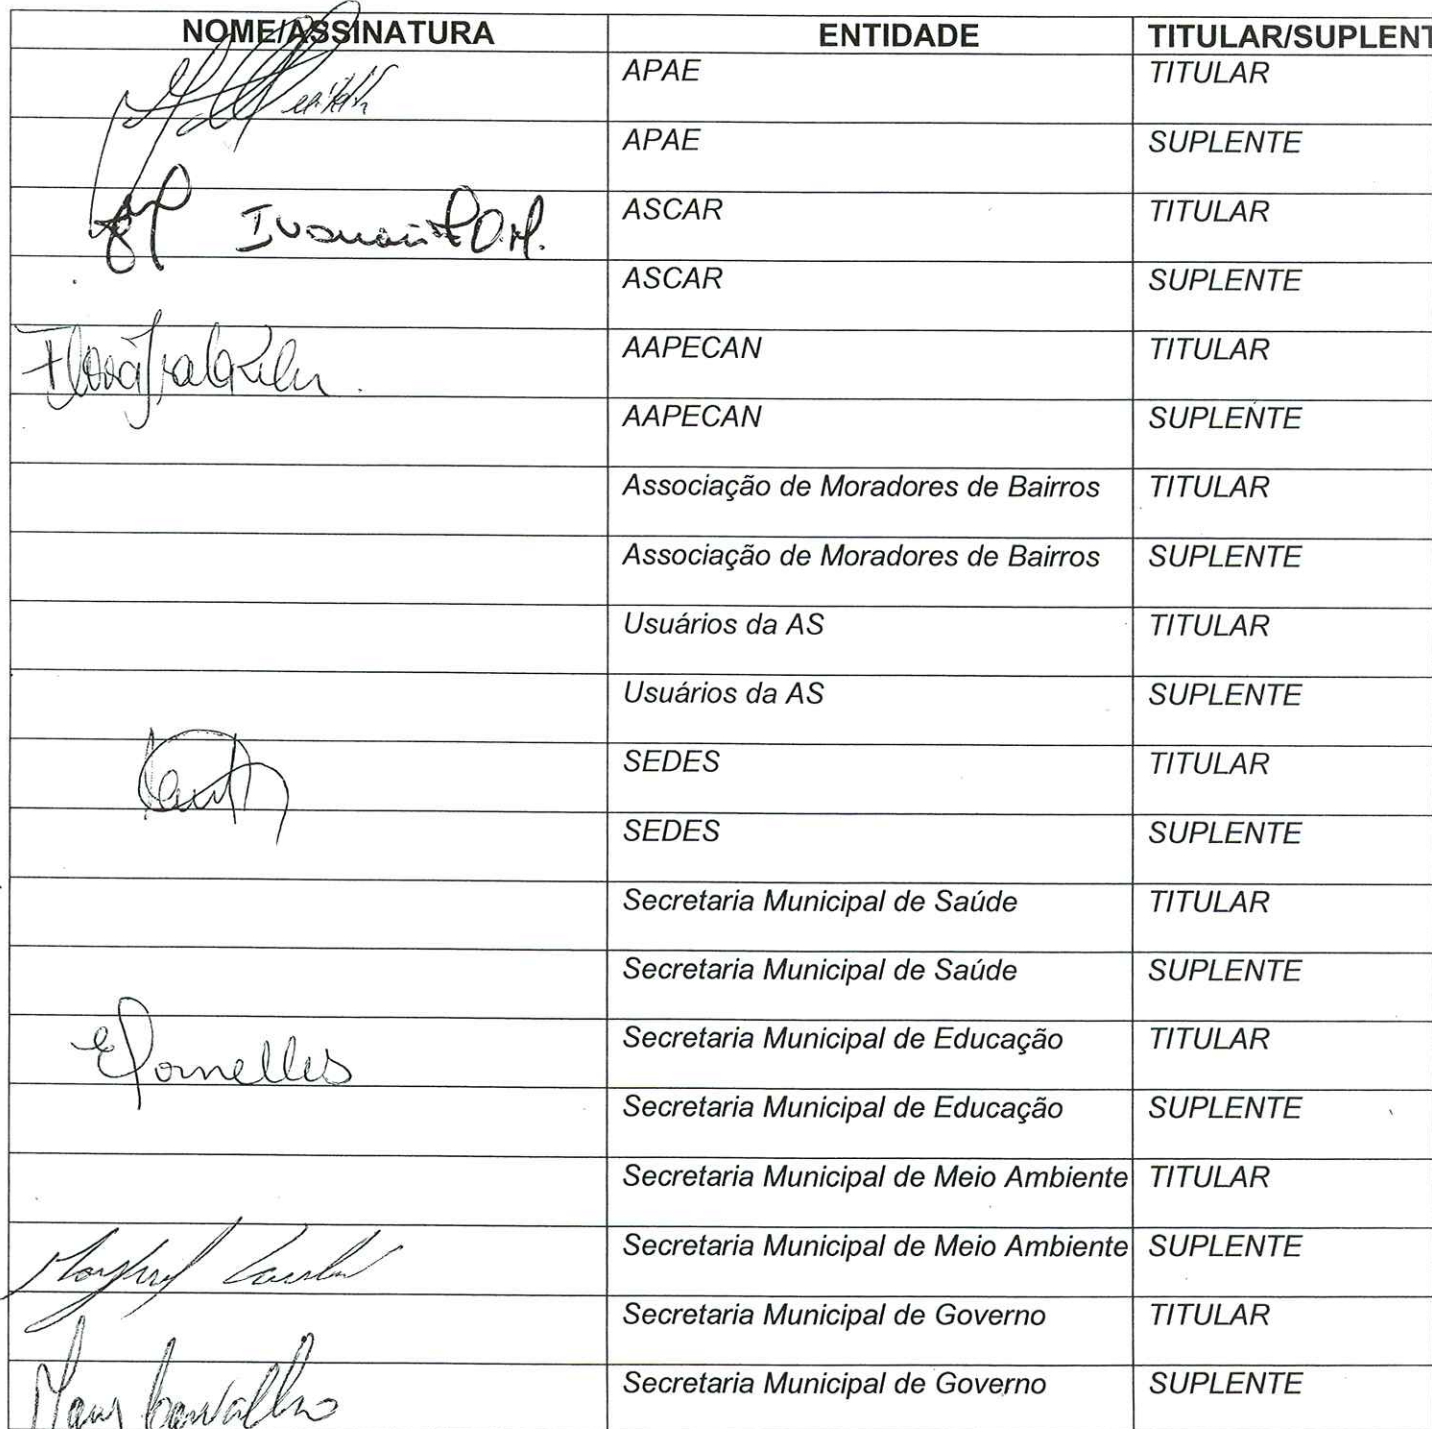 NOME/ASSINATURA ENTIDADE TITULAR/SUPLENT
APAE TITULAR
APAE SUPLENTE
ASCAR TITULAR
ASCAR SUPLENTE
AAPECAN TITULAR
AAPECAN SUPLENTE
Associação de Moradores de Bairros TITULAR
Associação de Moradores de Bairros SUPLENTE
Usuários da AS TITULAR
Usuários da AS SUPLENTE
SEDES TITULAR
SEDES SUPLENTE
Secretaria Municipal de Saúde TITULAR
Secretaria Municipal de Saúde SUPLENTE
Secretaria Municipal de Educação TITULAR
Secretaria Municipal de Educação SUPLENTE
Secretaria Municipal de Meio Ambiente TITULAR
Secretaria Municipal de Meio Ambiente SUPLENTE
Secretaria Municipal de Governo TITULAR
Carvalho Secretaria Municipal de Governo SUPLENTE